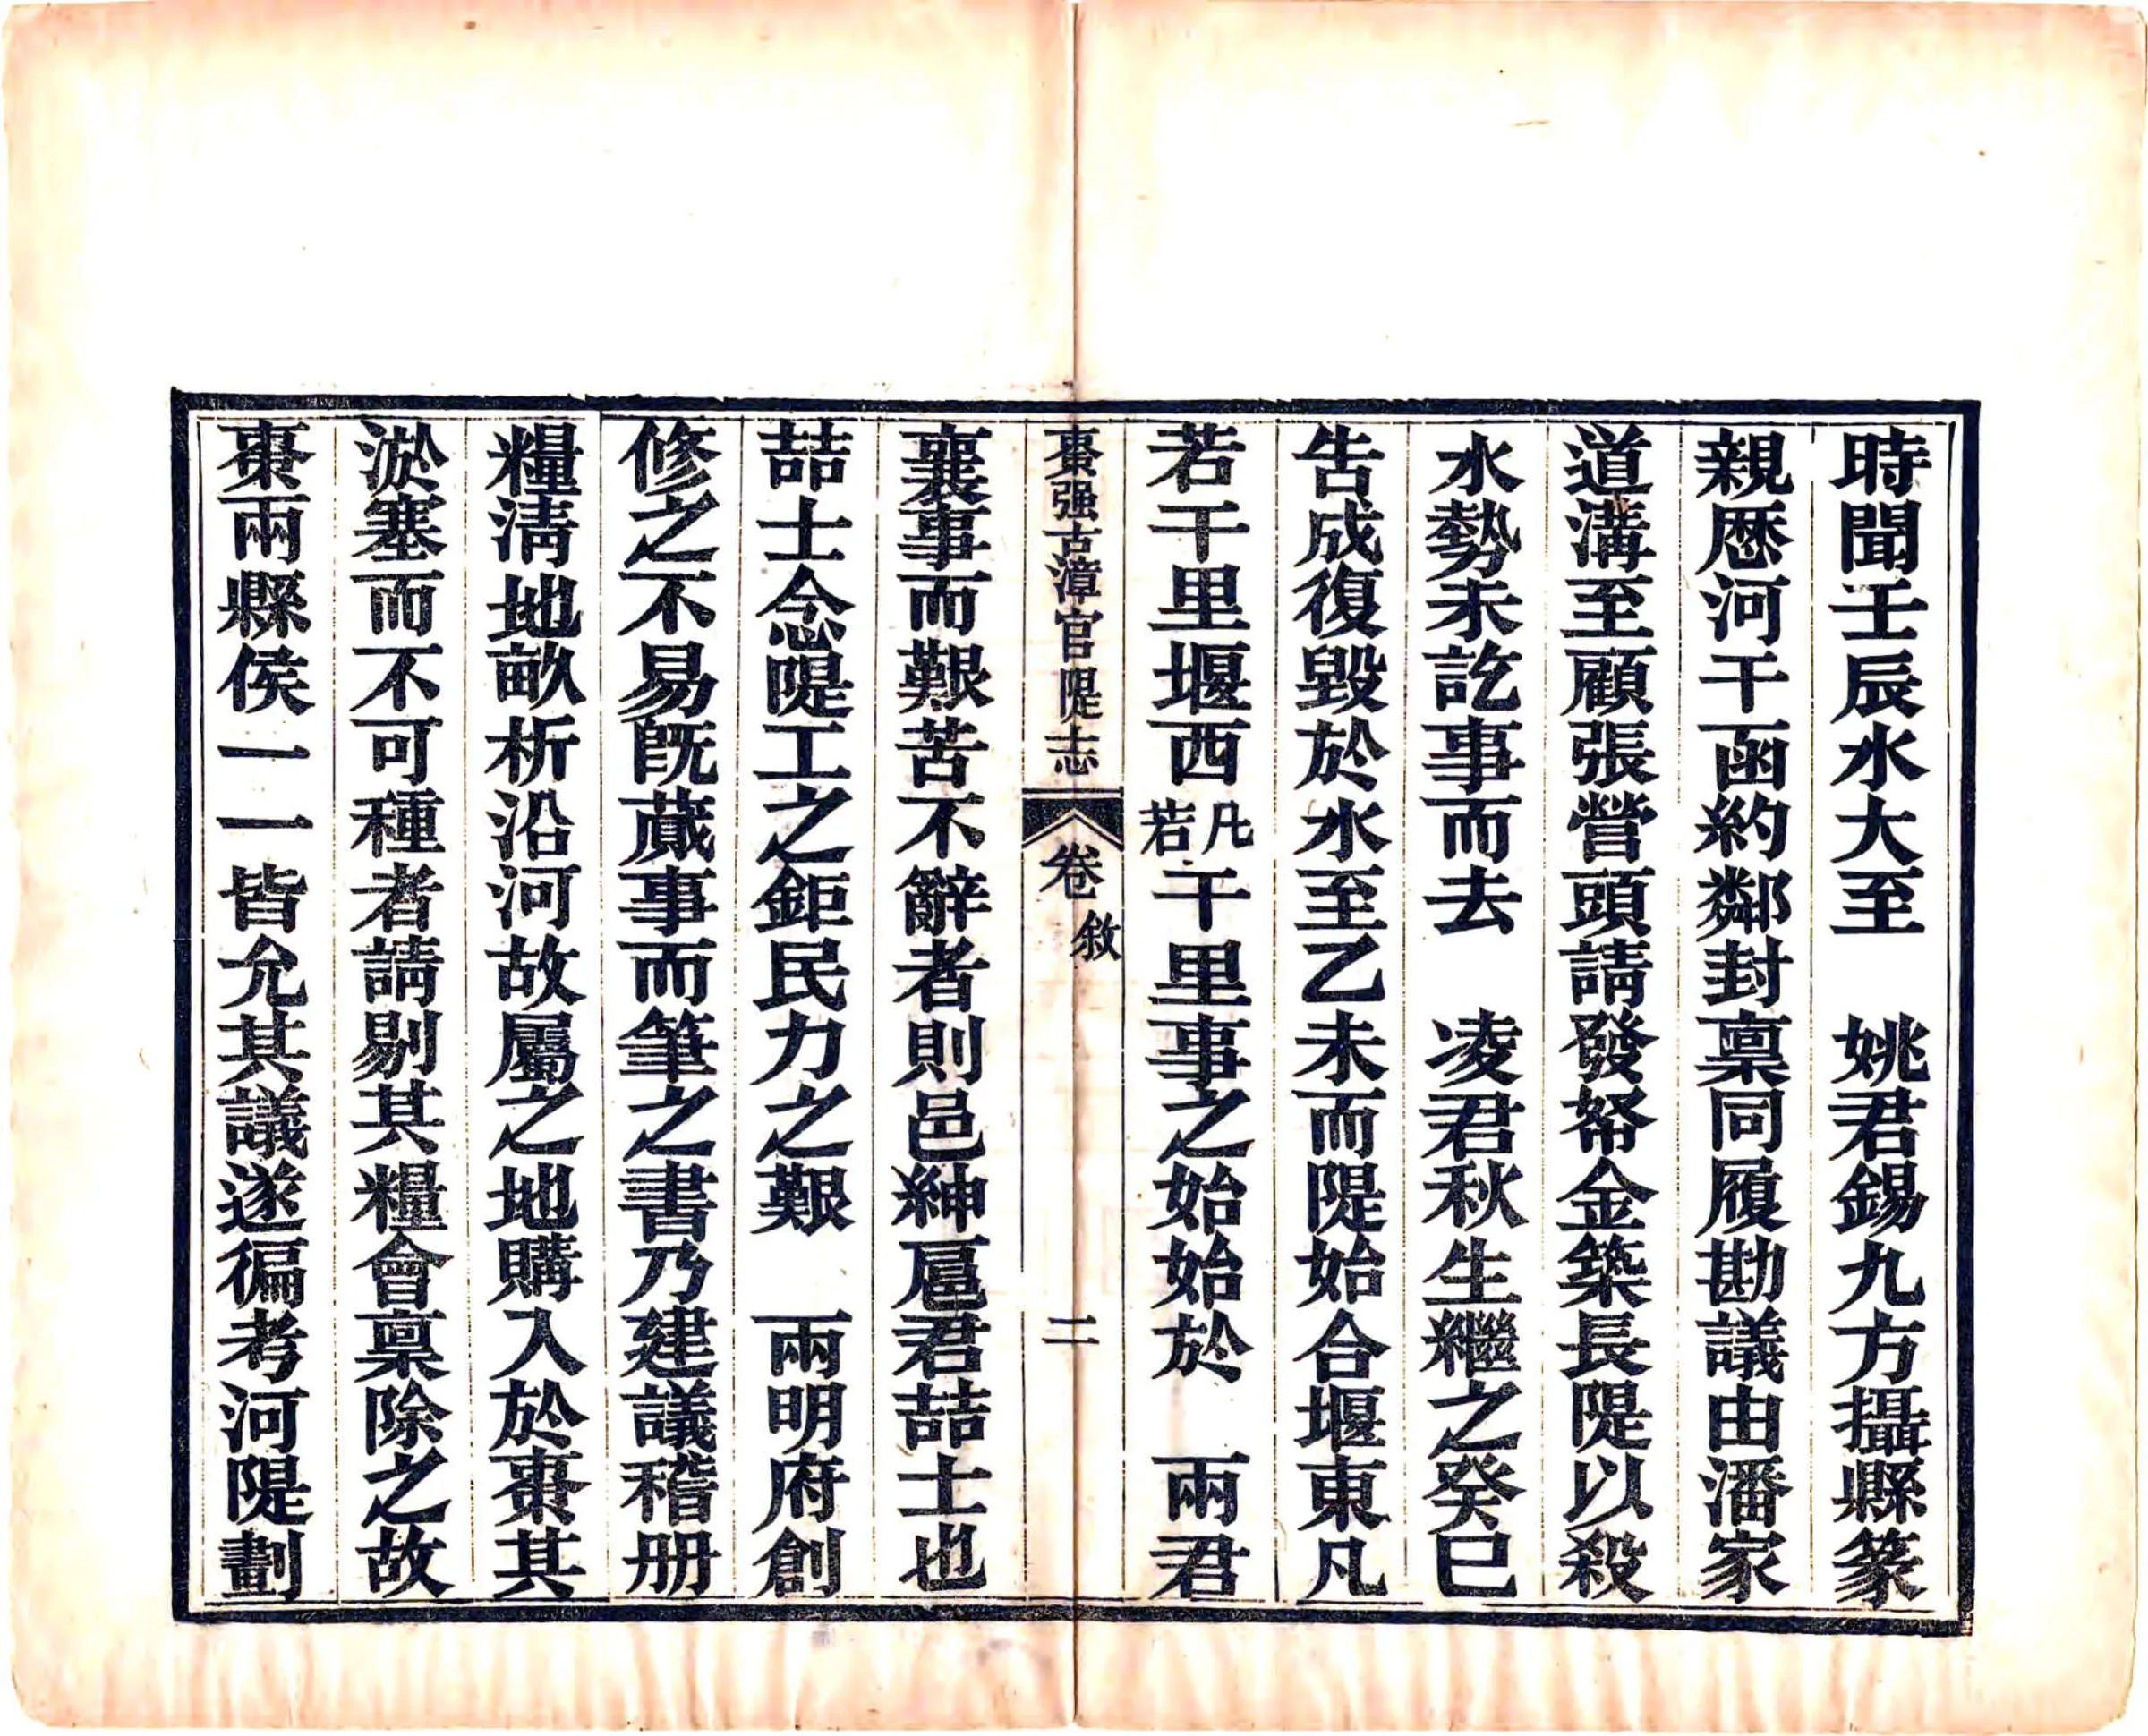 時聞壬辰水大至　姚君錫九方攝縣篆
親厯河干函約鄰封稟同履勘議由潘家
道溝至顧張營頭請發帑金築長隄以殺
水勢未訖事而去　凌君秋生繼之癸巳
告成復毀於水至乙未而隄始合堰東凡
若干里堰西凡若干里事之始始於　兩君
棗强古漳官隄志　卷　敘　二
襄事而艱苦不辭者則邑紳扈君喆士也
喆士念隄工之鉅民力之艱　兩明府創
修之不易旣蕆事而筆之書乃建議稽册
糧淸地畝析沿河故屬之地購入於棗其
淤塞而不可種者請剔其糧會稟除之故
棗兩縣侯一一皆允其議遂徧考河隄劃